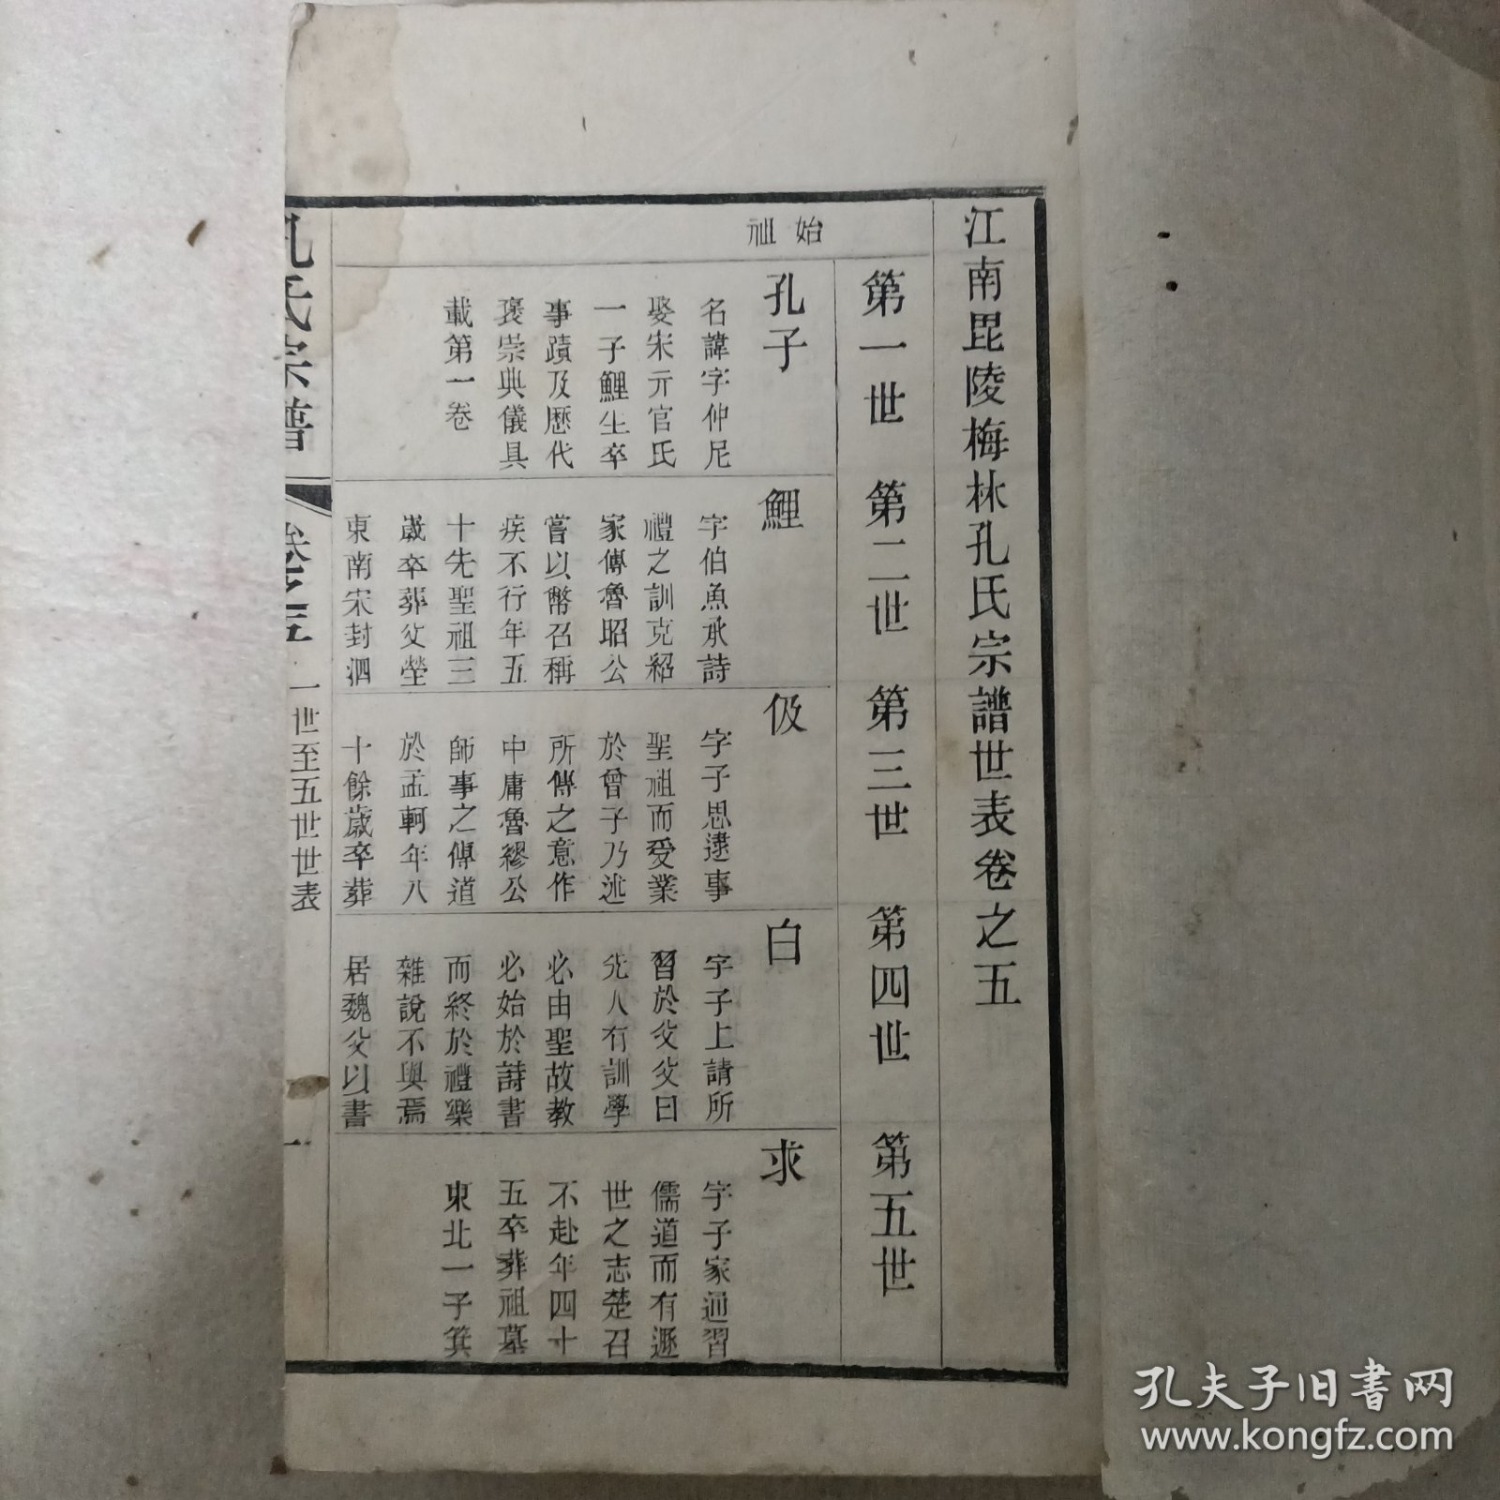 江南毘陵梅林孔氏宗譜世表卷之五
第一世
第二世
第三世
第四世
第五世
始祖
孔子
名諱字仲尼
娶宋亓官氏
一子鯉生卒
事蹟及歷代
褒崇典儀具
載第一卷
鯉
字伯魚承詩
禮之訓克紹
家傳魯昭公
嘗以幣召稱
疾不行年五
十先聖祖三
歲卒葬父塋
東南宋封泗
伋
字子思逮事
聖祖而受業
於曾子乃述
所傳之意作
中庸魯繆公
師事之傳道
於孟軻年八
十餘歲卒葬
白
字子上請所
習於父父曰
先人有訓學
必由聖故教
必始於詩書
而終於禮樂
雜說不與焉
居魏父以書
求
字子家通習
儒道而有遯
世之志楚召
不赴年四十
五卒葬祖墓
東北一子箕
孔氏宗譜
卷之五
一世至五世世表
一
孔夫子旧書网
www.kongfz.com